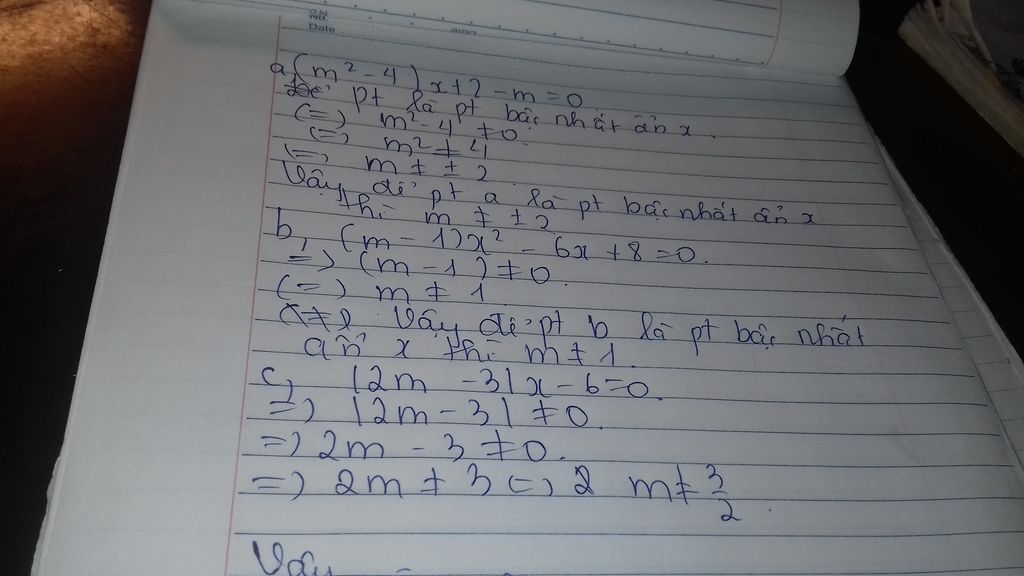 No.
Date
a, (m² - 4) x + 2 - m = 0
Để pt là pt bậc nhất ẩn x.
(=) m² - 4 ≠ 0
(=) m² ≠ 4
(=) m ≠ ± 2
Vậy để pt a là pt bậc nhất ẩn x
thì m ≠ ± 2
b, (m - 1)x² - 6x + 8 = 0.
=) (m - 1) ≠ 0
(=) m ≠ 1
Vậy để pt b là pt bậc nhất
ẩn x thì m ≠ 1
c, |2m - 3| x - 6 = 0.
=) |2m - 3| ≠ 0.
=) 2m - 3 ≠ 0.
=) 2m ≠ 3 (=) 2 m ≠ 3/2.
Vậy